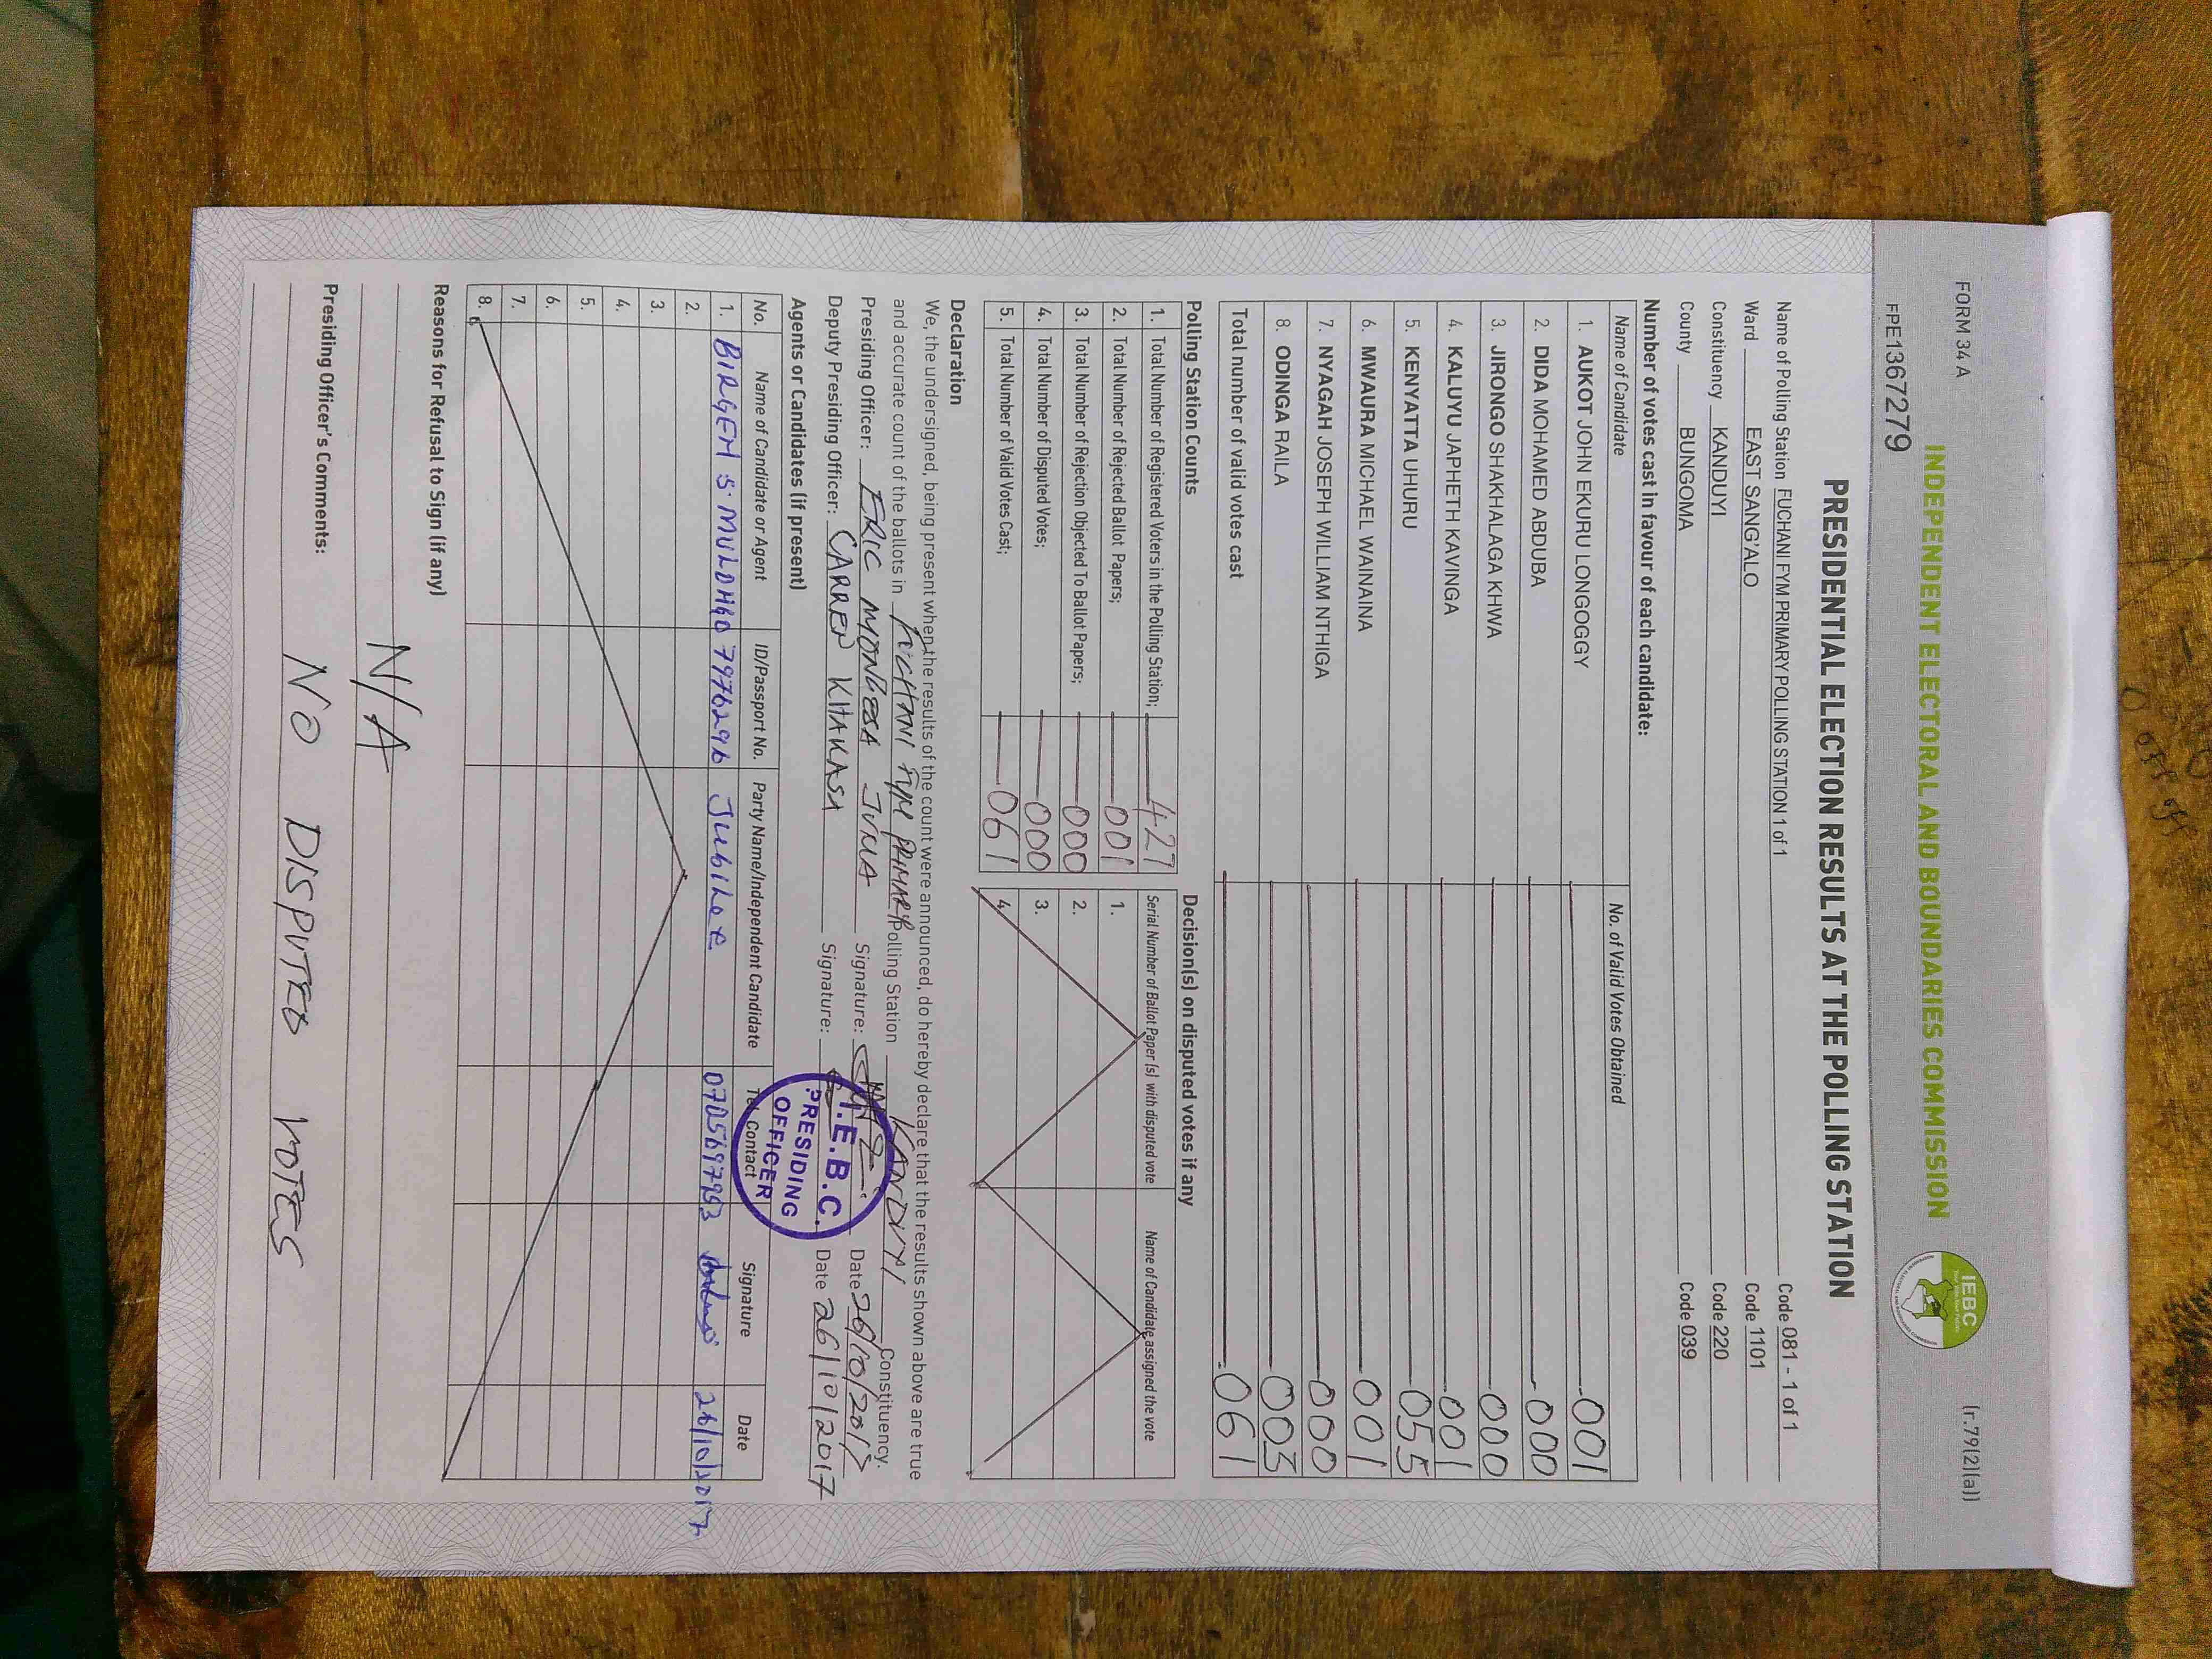 FORM 34 A
(r.79(2)(a))
INDEPENDENT ELECTORAL AND BOUNDARIES COMMISSION
IEBC
FPE1367279
PRESIDENTIAL ELECTION RESULTS AT THE POLLING STATION
Name of Polling Station FUCHANI FYM PRIMARY POLLING STATION 1 of 1 Code 081 - 1 of 1
Ward EAST SANG'ALO Code 1101
Constituency KANDUYI Code 220
County BUNGOMA Code 039
Number of votes cast in favour of each candidate:
Name of Candidate No. of Valid Votes Obtained
1. AUKOT JOHN EKURU LONGOGGY 001
2. DIDA MOHAMED ABDUBA 000
3. JIRONGO SHAKHALAGA KHWA 000
4. KALUYU JAPHETH KAVINGA 001
5. KENYATTA UHURU 055
6. MWAURA MICHAEL WAINAINA 001
7. NYAGAH JOSEPH WILLIAM NTHIGA 000
8. ODINGA RAILA 003
Total number of valid votes cast 061
Polling Station Counts
1. Total Number of Registered Voters in the Polling Station; 427
2. Total Number of Rejected Ballot Papers; 001
3. Total Number of Rejection Objected To Ballot Papers; 000
4. Total Number of Disputed Votes; 000
5. Total Number of Valid Votes Cast; 061
Decision(s) on disputed votes if any
Serial Number of Ballot Paper (s) with disputed vote Name of Candidate assigned the vote
1.
2.
3.
4.
Declaration
We, the undersigned, being present when the results of the count were announced, do hereby declare that the results shown above are true
and accurate count of the ballots in FUCHANI FYM PRIMARY Polling Station KANDUYI Constituency.
Presiding Officer: ERIC JUMA Signature: Date 26/10/2017
Deputy Presiding Officer: CARREN KHAKASA Signature: Date 26/10/2017
I.E.B.C.
PRESIDING
OFFICER
Agents or Candidates (if present)
No. Name of Candidate or Agent ID/Passport No. Party Name/Independent Candidate Tel. Contact Signature Date
1. S. Jubilee 26/10/2017
2.
3.
4.
5.
6.
7.
8.
Reasons for Refusal to Sign (if any)
N/A
Presiding Officer's Comments:
NO DISPUTED VOTES